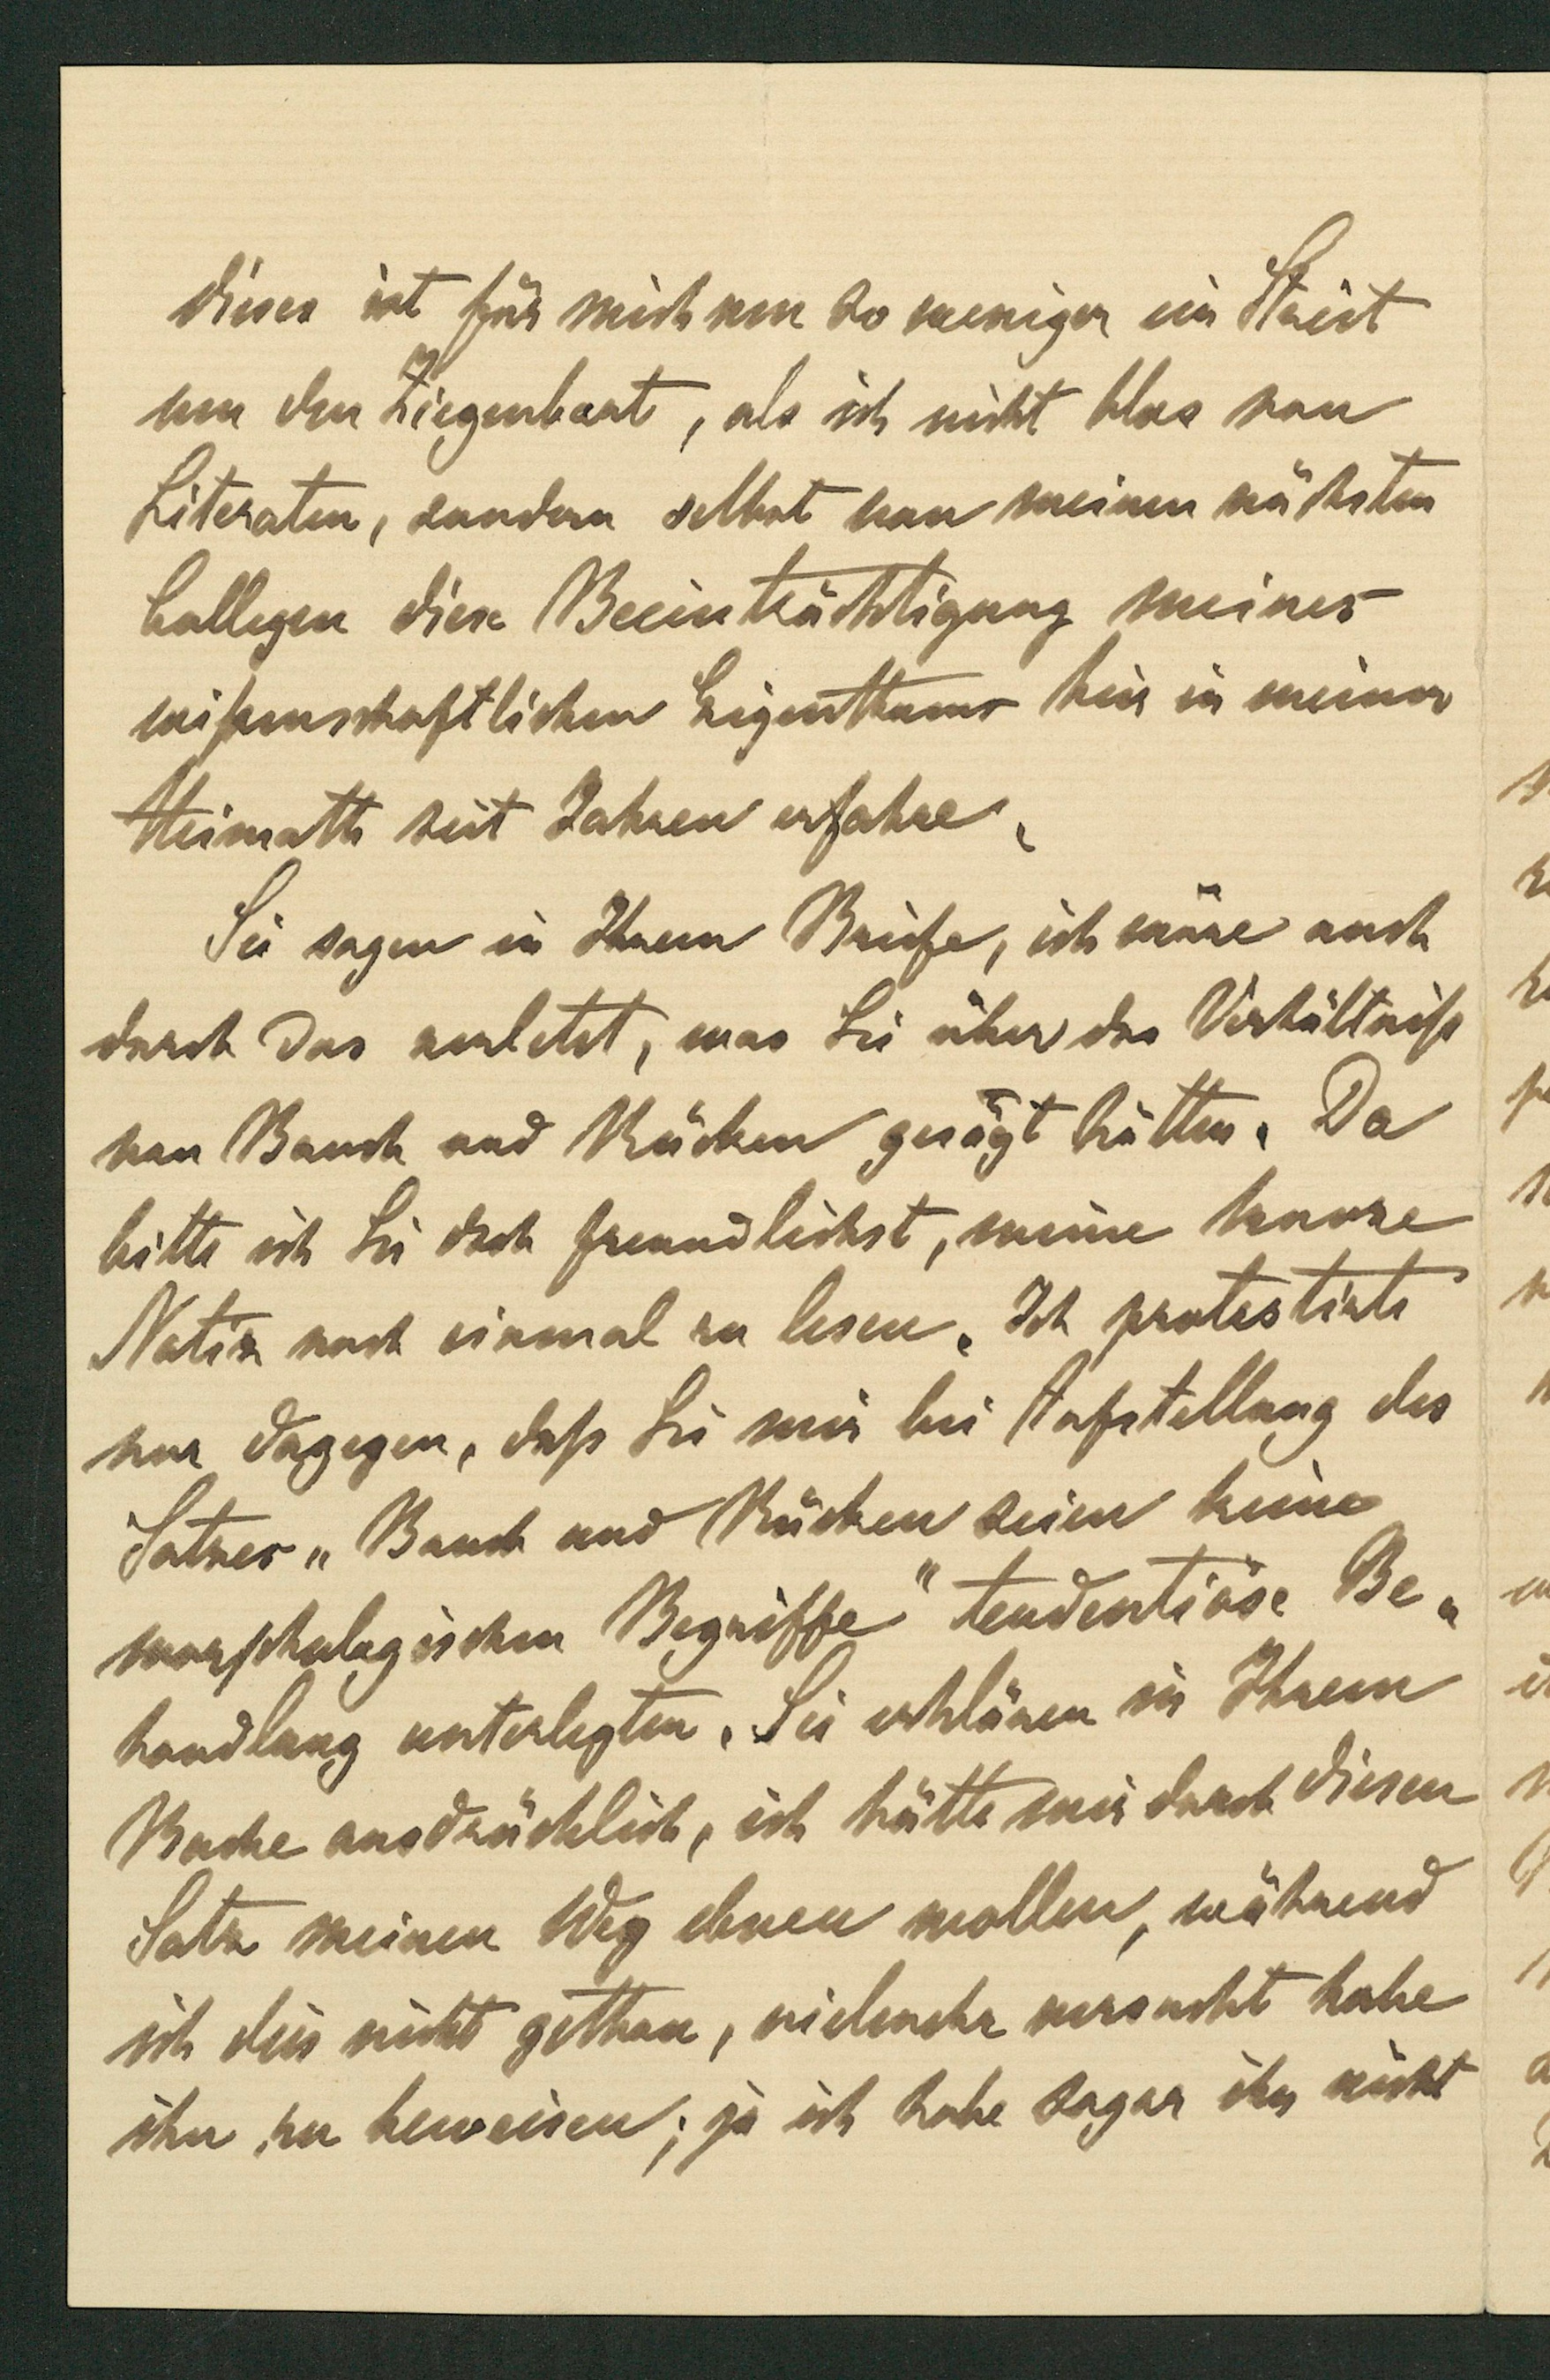 dieses ist für mich um so weniger ein Streit
um den Ziegenbart, als ich nicht blos von
Literaten, sondern selbst von meinen nächsten
Collegen diese Beeinträchtigung meines
wißenschaftlichen Eigenthums hier in meiner
Heimath seit Jahren erfahre.
Sie sagen in Ihrem Briefe, ich wäre auch
durch Das verletzt, was Sie über das Verhältniß
von Bauch und Rücken gesagt hätten. Da
bitte ich Sie doch freundlichst, meine kurze
Notiz noch einmal zu lesen. Ich protestirte
nur dagegen, daß Sie mir bei Aufstellung des
Satzes „Bauch und Rücken seien keine
morphologischen Begriffe" tendentiöse Be„
handlung unterlegten. Sie erklären in Ihrem
Buche ausdrücklich, ich hätte mir durch diesen
Satz meinen Weg ebnen wollen, während
ich dies nicht gethan, vielmehr versucht habe
ihn zu beweisen; ja ich habe sogar ihn nicht